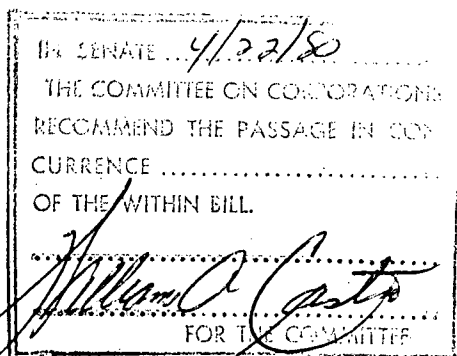 IN SENATE ... 4/22/80 ........
THE COMMITTEE ON CORPORATIONS
RECOMMEND THE PASSAGE IN CON
CURRENCE ..........................
OF THE WITHIN BILL.
William A Castro
FOR THE COMMITTEE